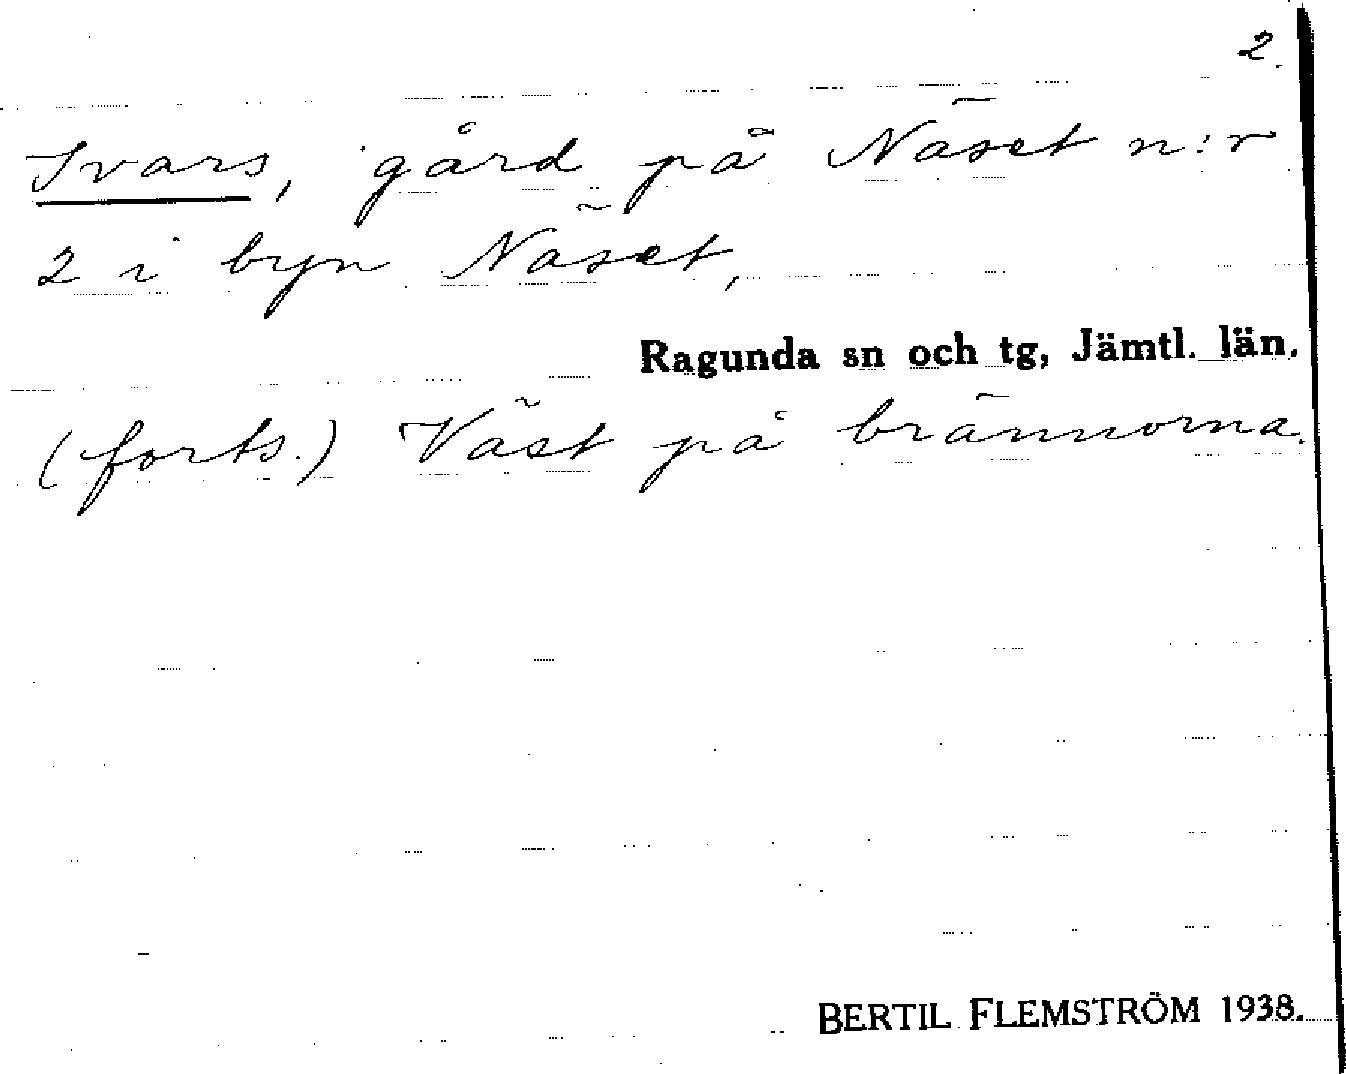 2.
Ivars, gård på Näset n:r
2 i byn Näset,
Ragunda sn och tg, Jämtl. län.
(forts.) Väst på brännorna.
BERTIL FLEMSTRÖM 1938.